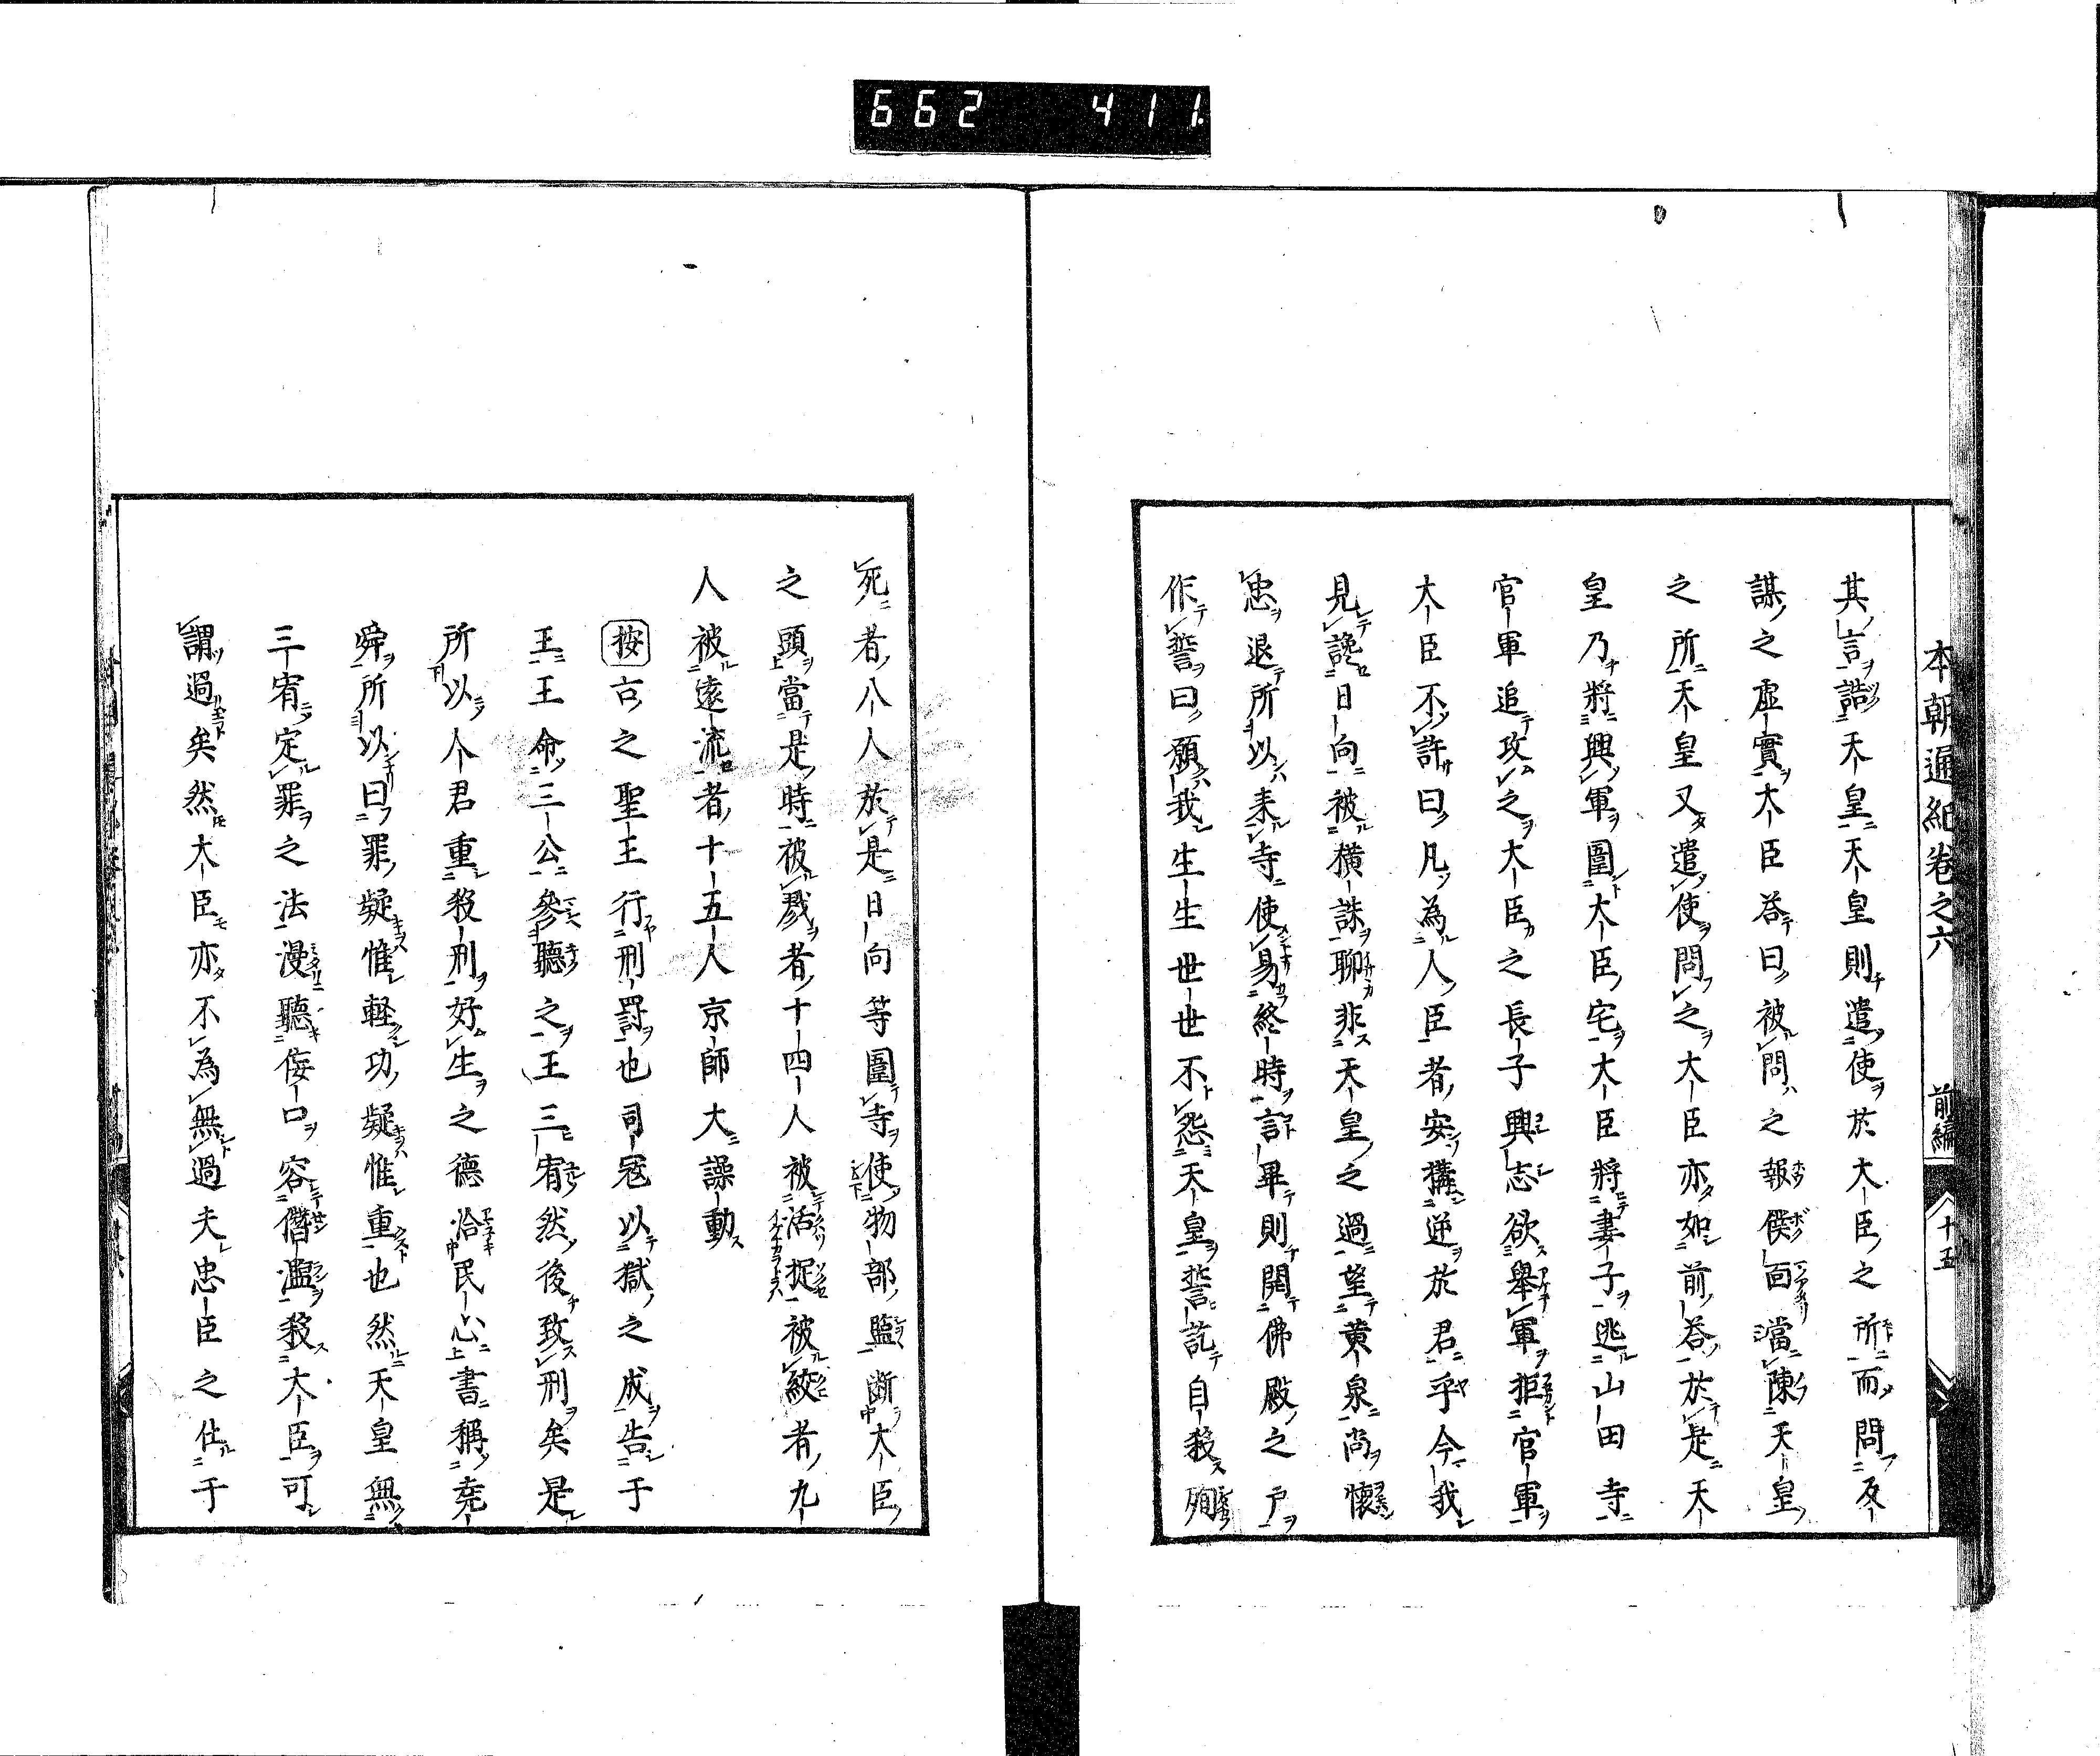 662 411.
本朝通紀卷之六 前編 十五
其言誥天皇天皇則遣使於大臣之所而問反
謀之虛實大臣答曰被問之報僕面當陳天皇
之所天皇又遣使問之大臣亦如前答於是天
皇乃將興軍圍大臣宅大臣將妻子逃山田寺
官軍追攻之大臣之長子興志欲舉軍拒官軍
大臣不許曰凡為人臣者安構逆於君乎今我
見讒日向被橫誅聊非天皇之過望黃泉尚懷
忠退所以来寺使易終時言畢則開佛殿之戶
作誓曰願我生生世世不怨天皇誓訖自殺殉
死者八人於是日向等圍寺使物部監断大臣
之頭當是時被戮者十四人被活捉被絞者九
人被遠流者十五人京師大譟動
按古之聖王行刑罰也司寇以獄之成告于
王王命三公參聽之王三宥然後致刑矣是
所以人君重殺刑好生之德洽民心書稱堯
舜所以曰罪疑惟軽功疑惟重也然天皇無
三宥定罪之法漫聽侫口容僭濫殺大臣可
謂過矣然大臣亦不為無過夫忠臣之仕于